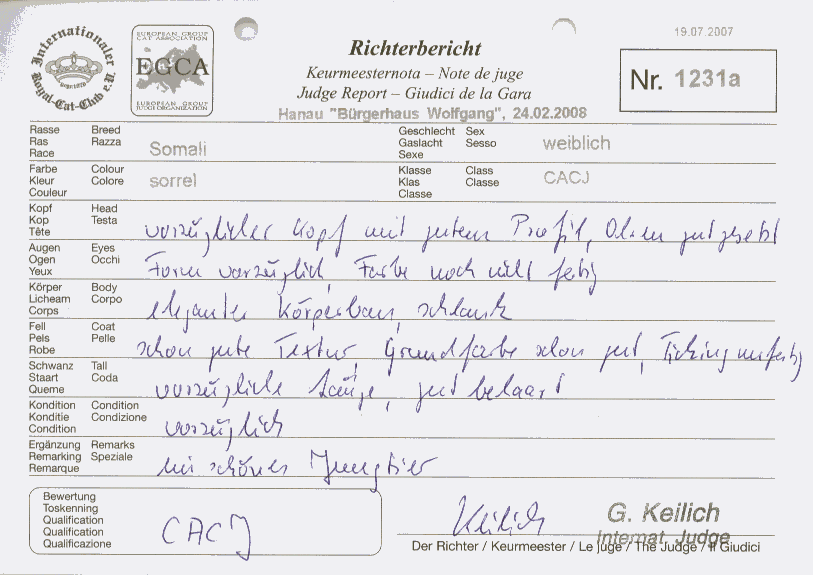 Internationaler Royal-Cat-Club e.V.
EUROPEAN GROUP
CAT ASSOCIATION
EGCA
EUROPEAN GROUP
JUDGE ORGANIZATION
19.07.2007
Richterbericht
Keurmeesternota – Note de juge
Judge Report – Giudici de la Gara
Nr. 1231a
Hanau "Bürgerhaus Wolfgang", 24.02.2008
Rasse Breed
Ras Razza
Race
Somali
Geschlecht Sex
Gaslacht Sesso
Sexe
weiblich
Farbe Colour
Kleur Colore
Couleur
sorrel
Klasse Class
Klas Classe
Classe
CACJ
Kopf Head
Kop Testa
Tête
vorzüglicher Kopf mit gutem Profil, Ohren gut gesetzt
Augen Eyes
Ogen Occhi
Yeux
Form vorzüglich, Farbe noch nicht fertig
Körper Body
Licheam Corpo
Corps
eleganter Körperbau, schlank
Fell Coat
Pels Pelle
Robe
schon gute Textur, Grundfarbe schon gut, Ticking unfertig
Schwanz Tall
Staart Coda
Queme
vorzügliche Länge, gut behaart
Kondition Condition
Konditie Condizione
Condition
vorzüglich
Ergänzung Remarks
Remarking Speziale
Remarque
ein schönes Jungtier
Bewertung
Toskenning
Qualification
Qualification
Qualificazione
CACJ
Keilich
G. Keilich
Internat. Judge
Der Richter / Keurmeester / Le juge / The Judge / Il Giudici